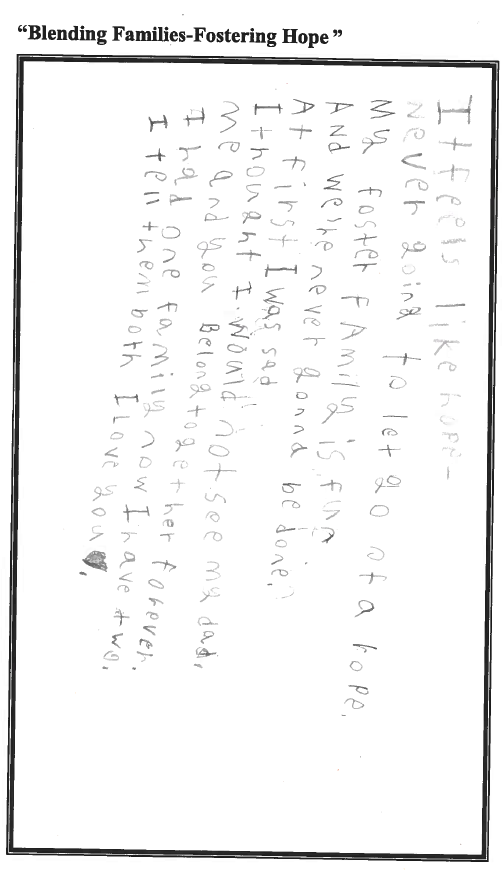 “Blending Families-Fostering Hope”
It feels like hope-
never going to let go of a rope.
My foster FAmily is fun
And we're never gonna be done.
At first I was sad
I thought I would not see my dad.
me and you Belong together forever.
I had one family now I have two.
I tell them both I Love you ♥.